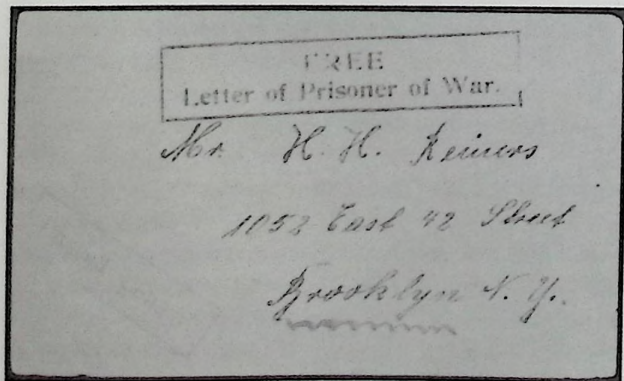 FREE
Letter of Prisoner of War.
Mr. H. H. Reiners
1052 East 42 Street
Brooklyn N. Y.